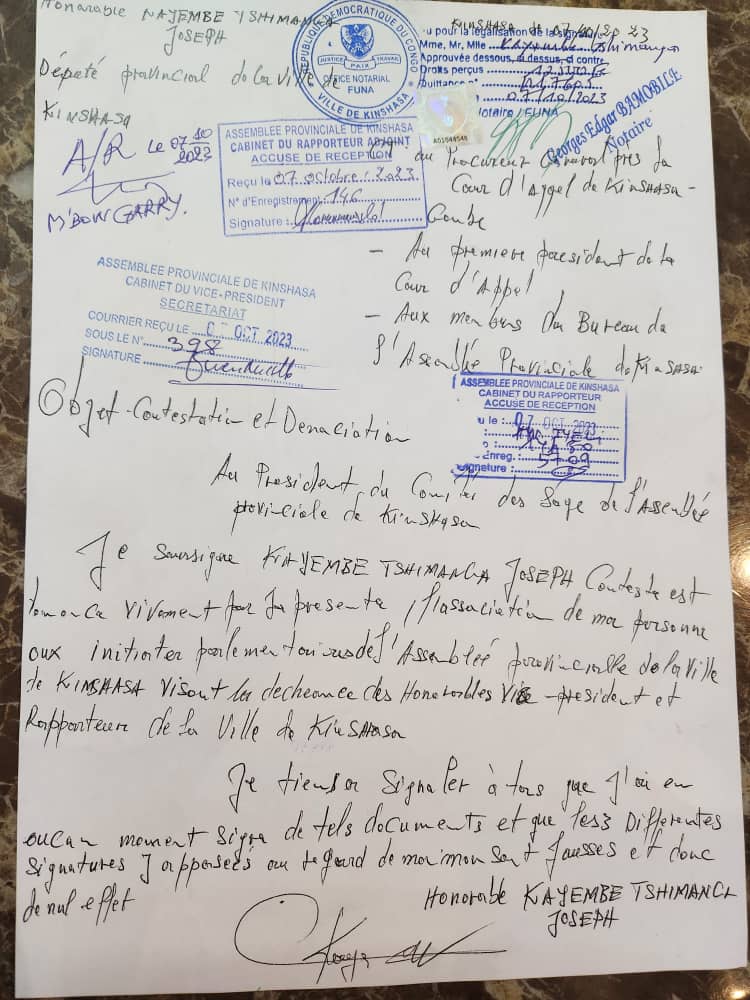 Honorable KAYEMBE TSHIMANGA
JOSEPH
Député provincial de la ville de
KINSHASA
KINSHASA le 07/10/2023
REPUBLIQUE DEMOCRATIQUE DU CONGO
JUSTICE PAIX TRAVAIL
OFFICE NOTARIAL
FUNA
VILLE DE KINSHASA
u pour la légalisation de la signatu
Mme, Mr, Mlle Kayembe Tshimanga
Approuvée dessous, au dessus, ci contre
Droits perçus
Quittance n°
07/10/2023
Notaire/FUNA
Georges Edgar BAMOBILE
Notaire
A/R le 07 10
2023
M'BOW GARRY.
ASSEMBLEE PROVINCIALE DE KINSHASA
CABINET DU RAPPORTEUR ADJOINT
ACCUSE DE RECEPTION
Reçu le 07 octobre 2023
N° d'Enregistrement 146
Signature :
au Procureur Général près la
Cour d'Appel de KINSHASA -
Gombe
- Au premiere president de la
Cour d'Appel
- Aux membres du Bureau de
l'Assemblée Provinciale de KINSHASA
ASSEMBLEE PROVINCIALE DE KINSHASA
CABINET DU VICE-PRESIDENT
SECRETARIAT
COURRIER REÇU LE OCT 2023
SOUS LE N° 398
SIGNATURE
ASSEMBLEE PROVINCIALE DE KINSHASA
CABINET DU RAPPORTEUR
ACCUSE DE RECEPTION
u le : 07 OCT 2023
Enreg. : 5709
Signature :
Objet - Contestation et Denociation
Au President du Comité des Sage de l'Assemblée
provinciale de KINSHASA
Je soussigne KAYEMBE TSHIMANGA JOSEPH Conteste est
vivement par la presente, l'association de ma personne
aux initiater parlementaires de l'Assemblée provincialle de la Ville
de KINSHASA visont la decheance des Honorables Vice-president et
Rapporteur de la Ville de KINSHASA
Je tiens a signaler à tous que j'ai en
oucan moment signa de tels documents et que les 3 Differentes
signatures J apposées au regard de mon nom sont fausses et donc
de nul effet
Honorable KAYEMBE TSHIMANGA
JOSEPH